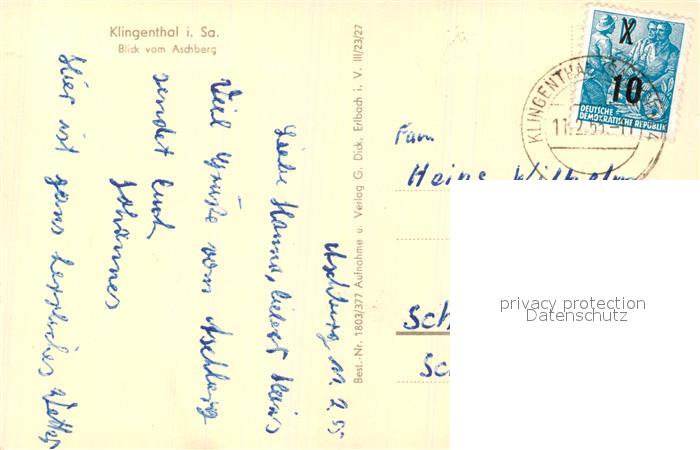 Klingenthal i. Sa.
Blick vom Aschberg
Best.-Nr. 1803/377 Aufnahme u. Verlag G. Dick, Erlbach i. V. III/23/27
Aschberg 11. 2. 55
Liebe Hanna, lieber Heins
Viel Grüße vom Aschberg
sendet Euch
Johannes
Hier ist ganz herrliches Wetter
X
10
DEUTSCHE
DEMOKRATISCHE REPUBLIK
KLINGENTHAL
11.2.55.-11
Fam
Heins Wilhelm
Sch
Sc
privacy protection
Datenschutz